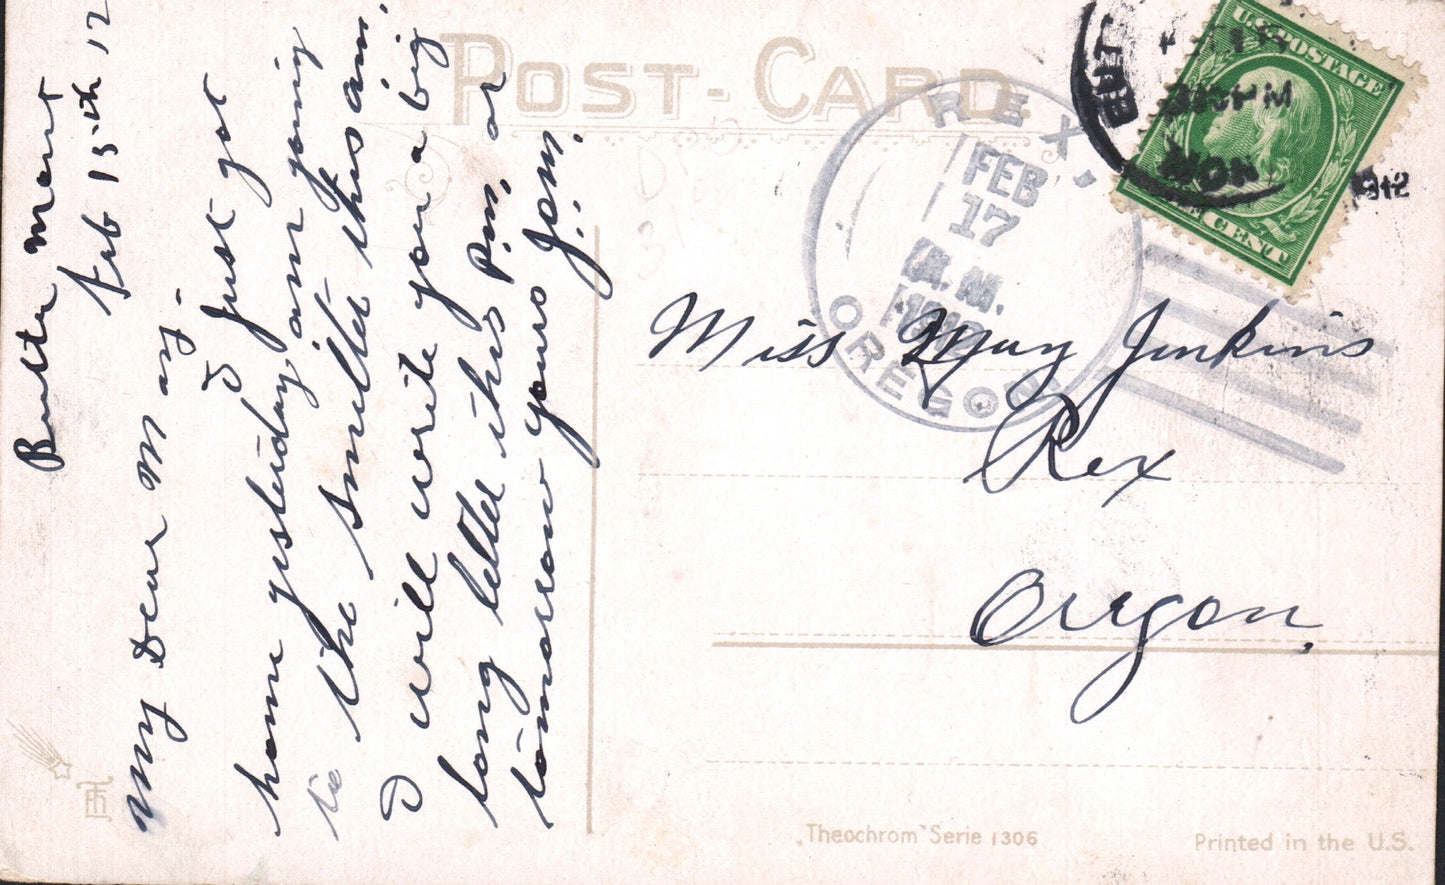 POST-CARD
Butte Mont
Feb 15th 12
My Dear May.
I just got
home yesterday, am going
to the smitter this am.
I will write you a big
long letter this P.m. or
tomorrow yours Jom.
Miss May Jenkins
Rex
Oregon,
REX,
FEB
17
A.M.
1912
OREGON
BUT
PM
MON
1912
U.S. POSTAGE
CENT
Theochrom Serie 1306
Printed in the U.S.